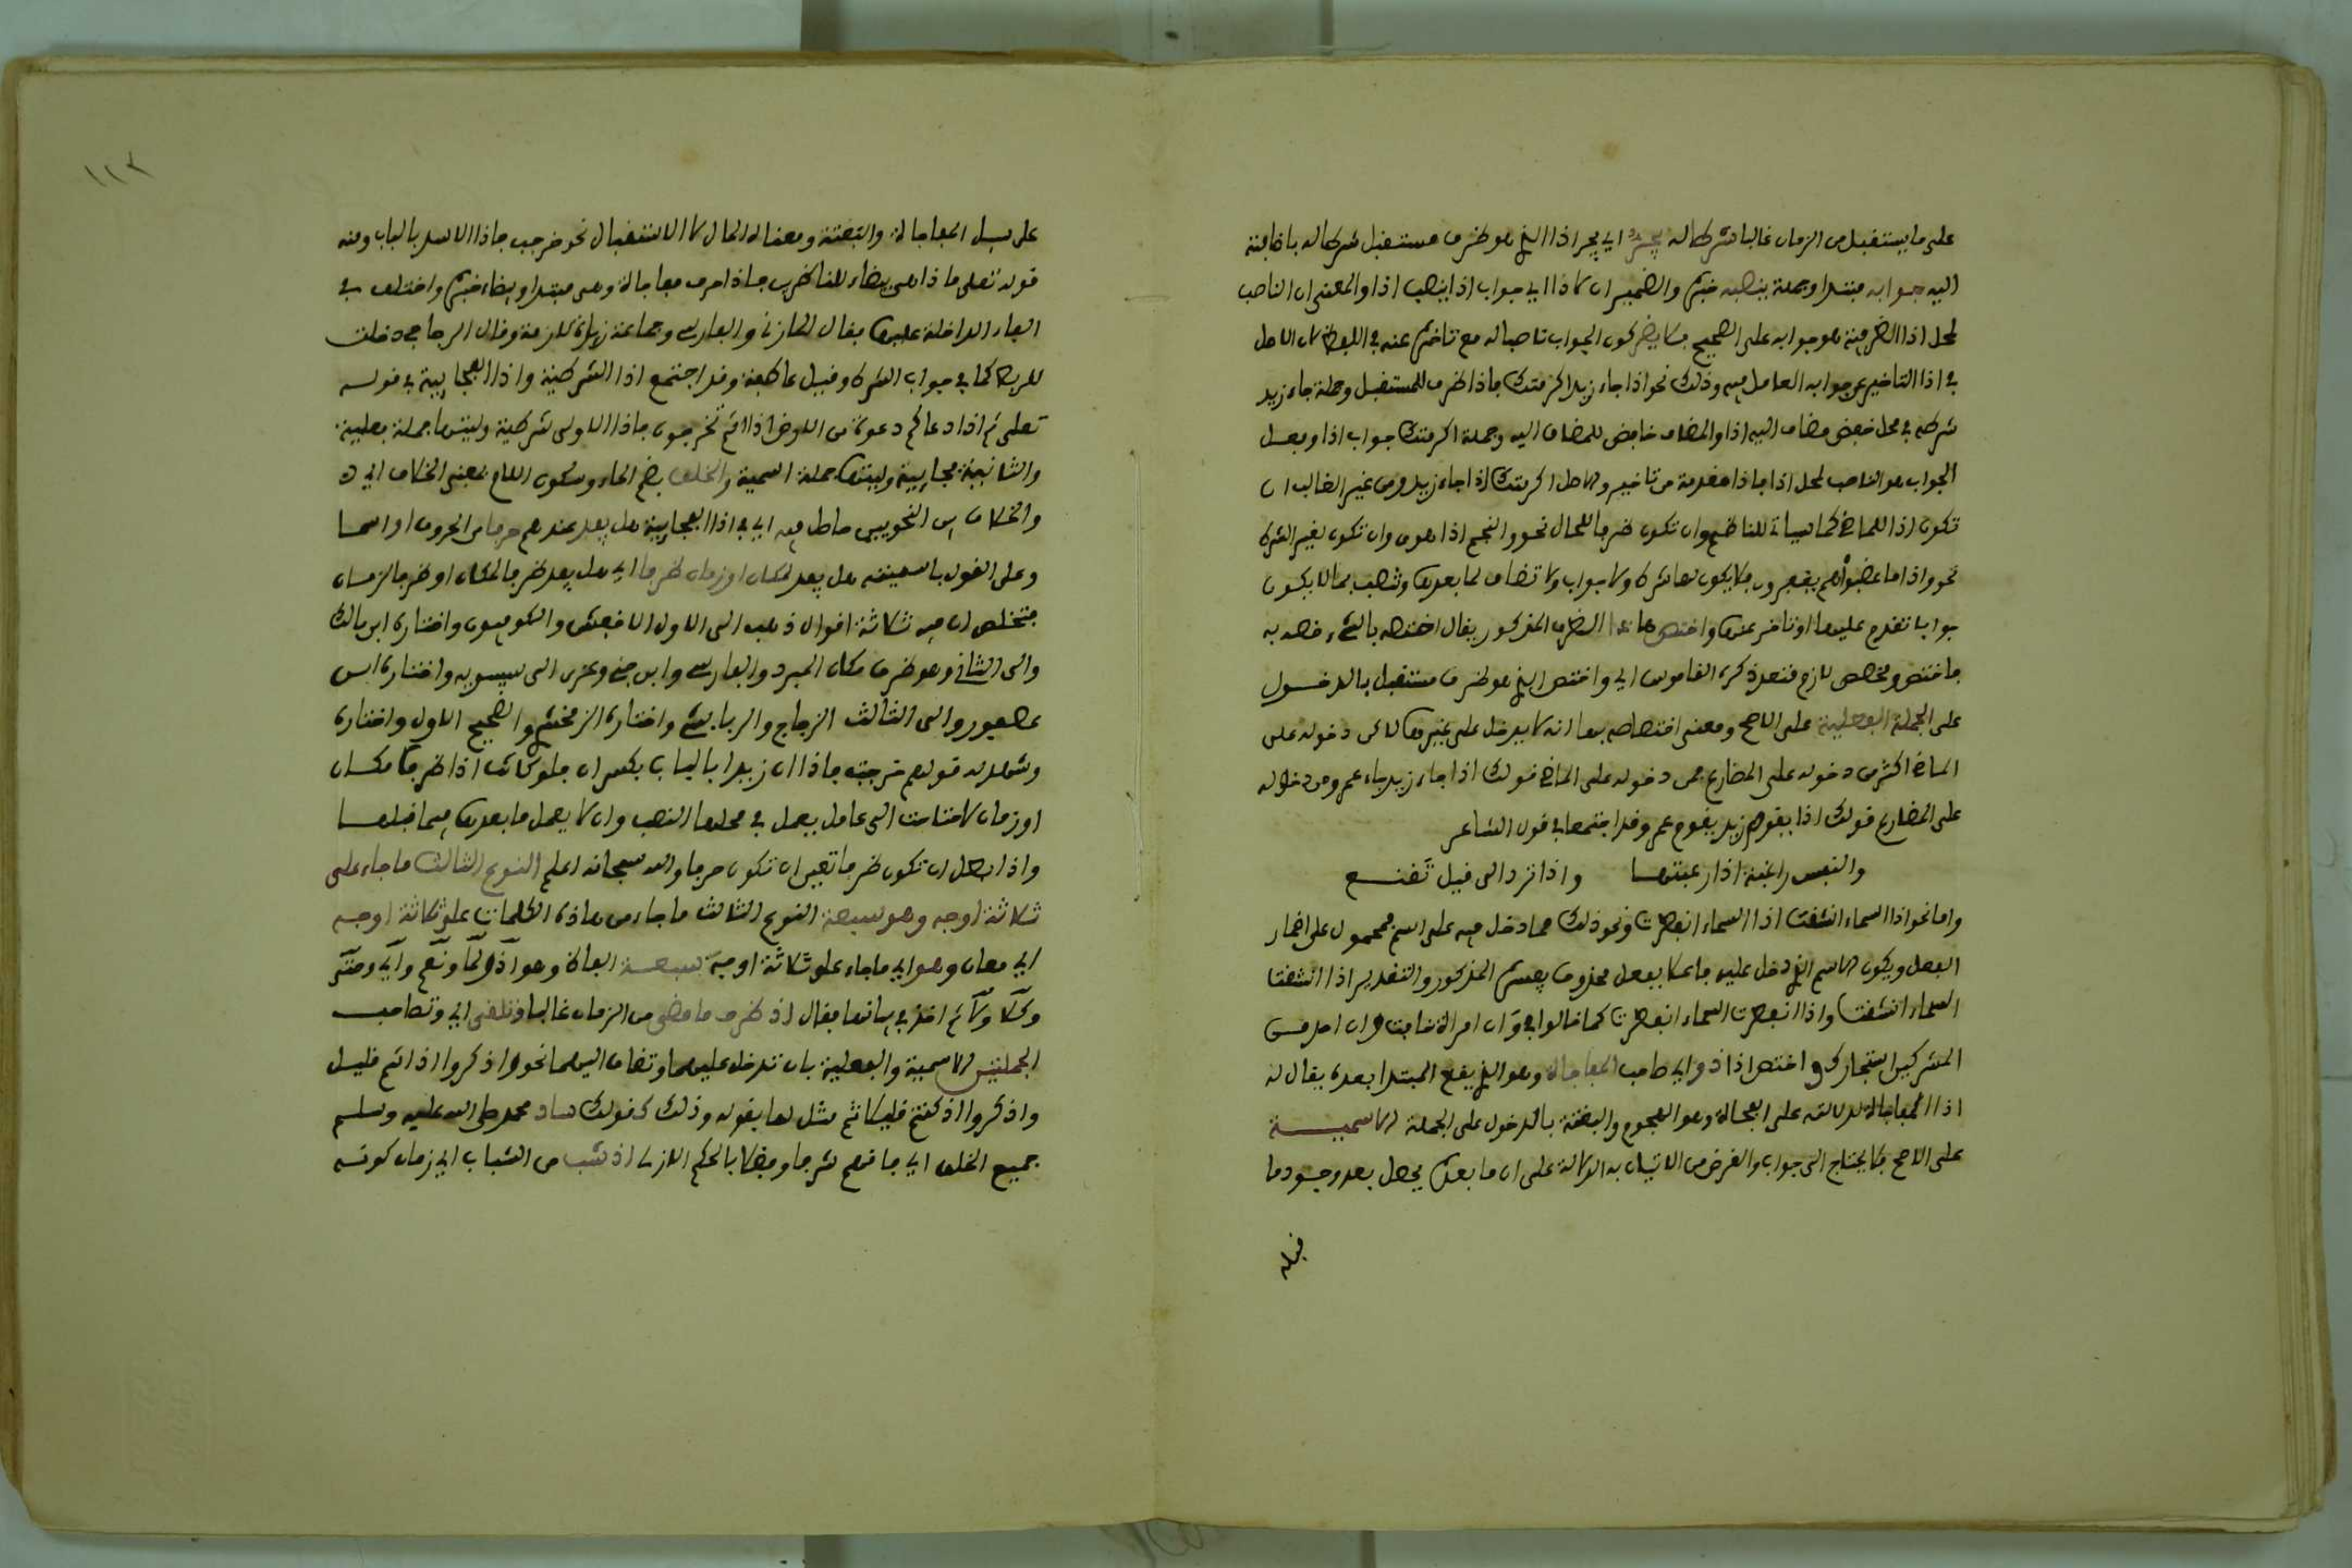 على ما يستقبل من الزمان غالبا شرطا له يجر اي يجر اذا الذي هو ظرف مستقبل شرطا له باضافته
اليه جوابه مبتدا وجملة ينصبه خبره والضمير ان لاذا اي جواب اذا ينصب اذا والمعنى ان الناصب
لمحل اذا الظرفية هو جوابه على الصحيح فلا يضر كون الجواب ناصبا له مع تاخره عنه في اللفظ لان الاصل
في اذا التاخير عن جوابه العامل فيه وذلك نحو اذا جاء زيد اكرمتك فاذا ظرف للمستقبل وجملة جاء زيد
شرطه في محل خفض مضاف اليه اذا والمضاف خافض للمضاف اليه وجملة اكرمتك جواب اذا وفعل
الجواب هو الناصب لمحل اذا فاذا مقدمة من تاخير والاصل اكرمتك اذا جاء زيد ومن غير الغالب ان
تكون اذا للماضي كما سياتي للناظم وان تكون ظرفا للحال نحو والنجم اذا هوى وان تكون لغير الشرط
نحو واذا ما غضبوا هم يغفرون فلا يكون لها شرط ولا جواب ولا تضاف لما بعدها وتنصب بما لا يكون
جوابا تقدم عليها او تاخر عنها واختص هذا الظرف المذكور يقال اختصه بالشيء خصه به
فاختص وتخصص لازم متعد ذكره القاموس اي واختص الذي هو ظرف مستقبل بالدخول
على الجملة الفعلية على الاصح ومعنى اختصاصه بها انه لا يدخل على غيرها لاكن دخوله على
الماضي اكثر من دخوله على المضارع فمن دخوله على الماضي قولك اذا جاء زيد جاء عمرو ومن دخوله
على المضارع قولك اذا يقوم زيد يقوم عمرو وقد اجتمعا في قول الشاعر
والنفس راغبة اذا رغبتها واذا ترد الى قليل تقنع
واما نحو اذا السماء انشقت اذا السماء انفطرت ونحو ذلك مما دخل فيه على اسم فمحمول على اضمار
الفعل ويكون الاسم الذي دخل عليه فاعلا بفعل محذوف يفسره المذكور والتقدير اذا انشقت
السماء انشقت واذا انفطرت السماء انفطرت كما قالوا في وان امراة خافت وان احد من
المشركين استجارك واختص اذا ذو اي صاحب المفاجاة وهو الذي يقع المبتدا بعده يقال له
اذا المفاجاة لدلالته على الفجاة وهو الهجوم والبغتة بالدخول على الجملة الاسمية
على الاصح فلا يحتاج الى جواب والغرض من الاتيان به الدلالة على ان ما بعده يحصل بعد وجود ما
قبله
١١٢
على سبيل المفاجاة والبغتة ومعناه الحال لا الاستقبال نحو خرجت فاذا الاسد بالباب ومنه
قوله تعلى فاذا هي بيضاء للناظرين فاذا حرف مفاجاة وهي مبتدا وبيضاء خبره واختلف في
الفاء الداخلة عليها فقال المازني والفارسي وجماعة زيادة لازمة وقال الزجاجي دخلت
للربط كما في جواب الشرط وقيل عاطفة وقد اجتمع اذا الشرطية واذا الفجايية في قوله
تعلى ثم اذا دعاكم دعوة من الارض اذا انتم تخرجون فاذا الاولى شرطية وليتها جملة فعلية
والثانية فجايية وليتها جملة اسمية والخلف بضم الخاء وسكون اللام بمعنى الخلاف اي
والخلاف بين النحويين حاصل فيه اي في اذا الفجايية هل يعد عندهم حرفا من الحروف او اسما
وعلى القول باسميته هل يعد لمكان او زمان ظرفا اي هل يعد ظرفا لمكان او ظرفا لزمان
فتخلص ان فيه ثلاثة اقوال ذهب الى الاول الاخفش والكوفيون واختاره ابن مالك
والى الثاني وهو ظرف مكان المبرد والفارسي وابن جني وعزى الى سيبويه واختاره ابن
عصفور والى الثالث الزجاج والرياشي واختاره الزمخشري والصحيح الاول واختاره
وشهد له قولهم خرجت فاذا ان زيدا بالباب بكسر ان فلو كانت اذا ظرف مكان
او زمان لاحتاجت الى عامل يعمل في محلها النصب وان لا يعمل ما بعدها فيما قبلها
واذا بطل ان تكون ظرفا تعين ان تكون حرفا والله سبحانه اعلم النوع الثالث ما جاء على
ثلاثة اوجه وهو سبعة النوع الثالث ما جاء من هاذه الكلمات على ثلاثة اوجه
اي معان وهو اي ما جاء على ثلاثة اوجه سبعة الفاظ وهو اذ ولما ونعم واي وحتى
وكلا ولا ثم اخذ في بيانها فقال اذ ظرف ما مضى من الزمان غالبا وتلفى اي وتصاحب
الجملتين الاسمية والفعلية بان تدخل عليهما وتضاف اليهما نحو واذكروا اذ انتم قليل
واذكروا اذ كنتم قليلا ثم مثل لها بقوله وذلك كقولك ساد محمد صلى الله عليه وسلم
جميع الخلق اي فاقهم شرفا وفضلا بالحكم الازلي اذ شب من الشباب اي زمان كونه